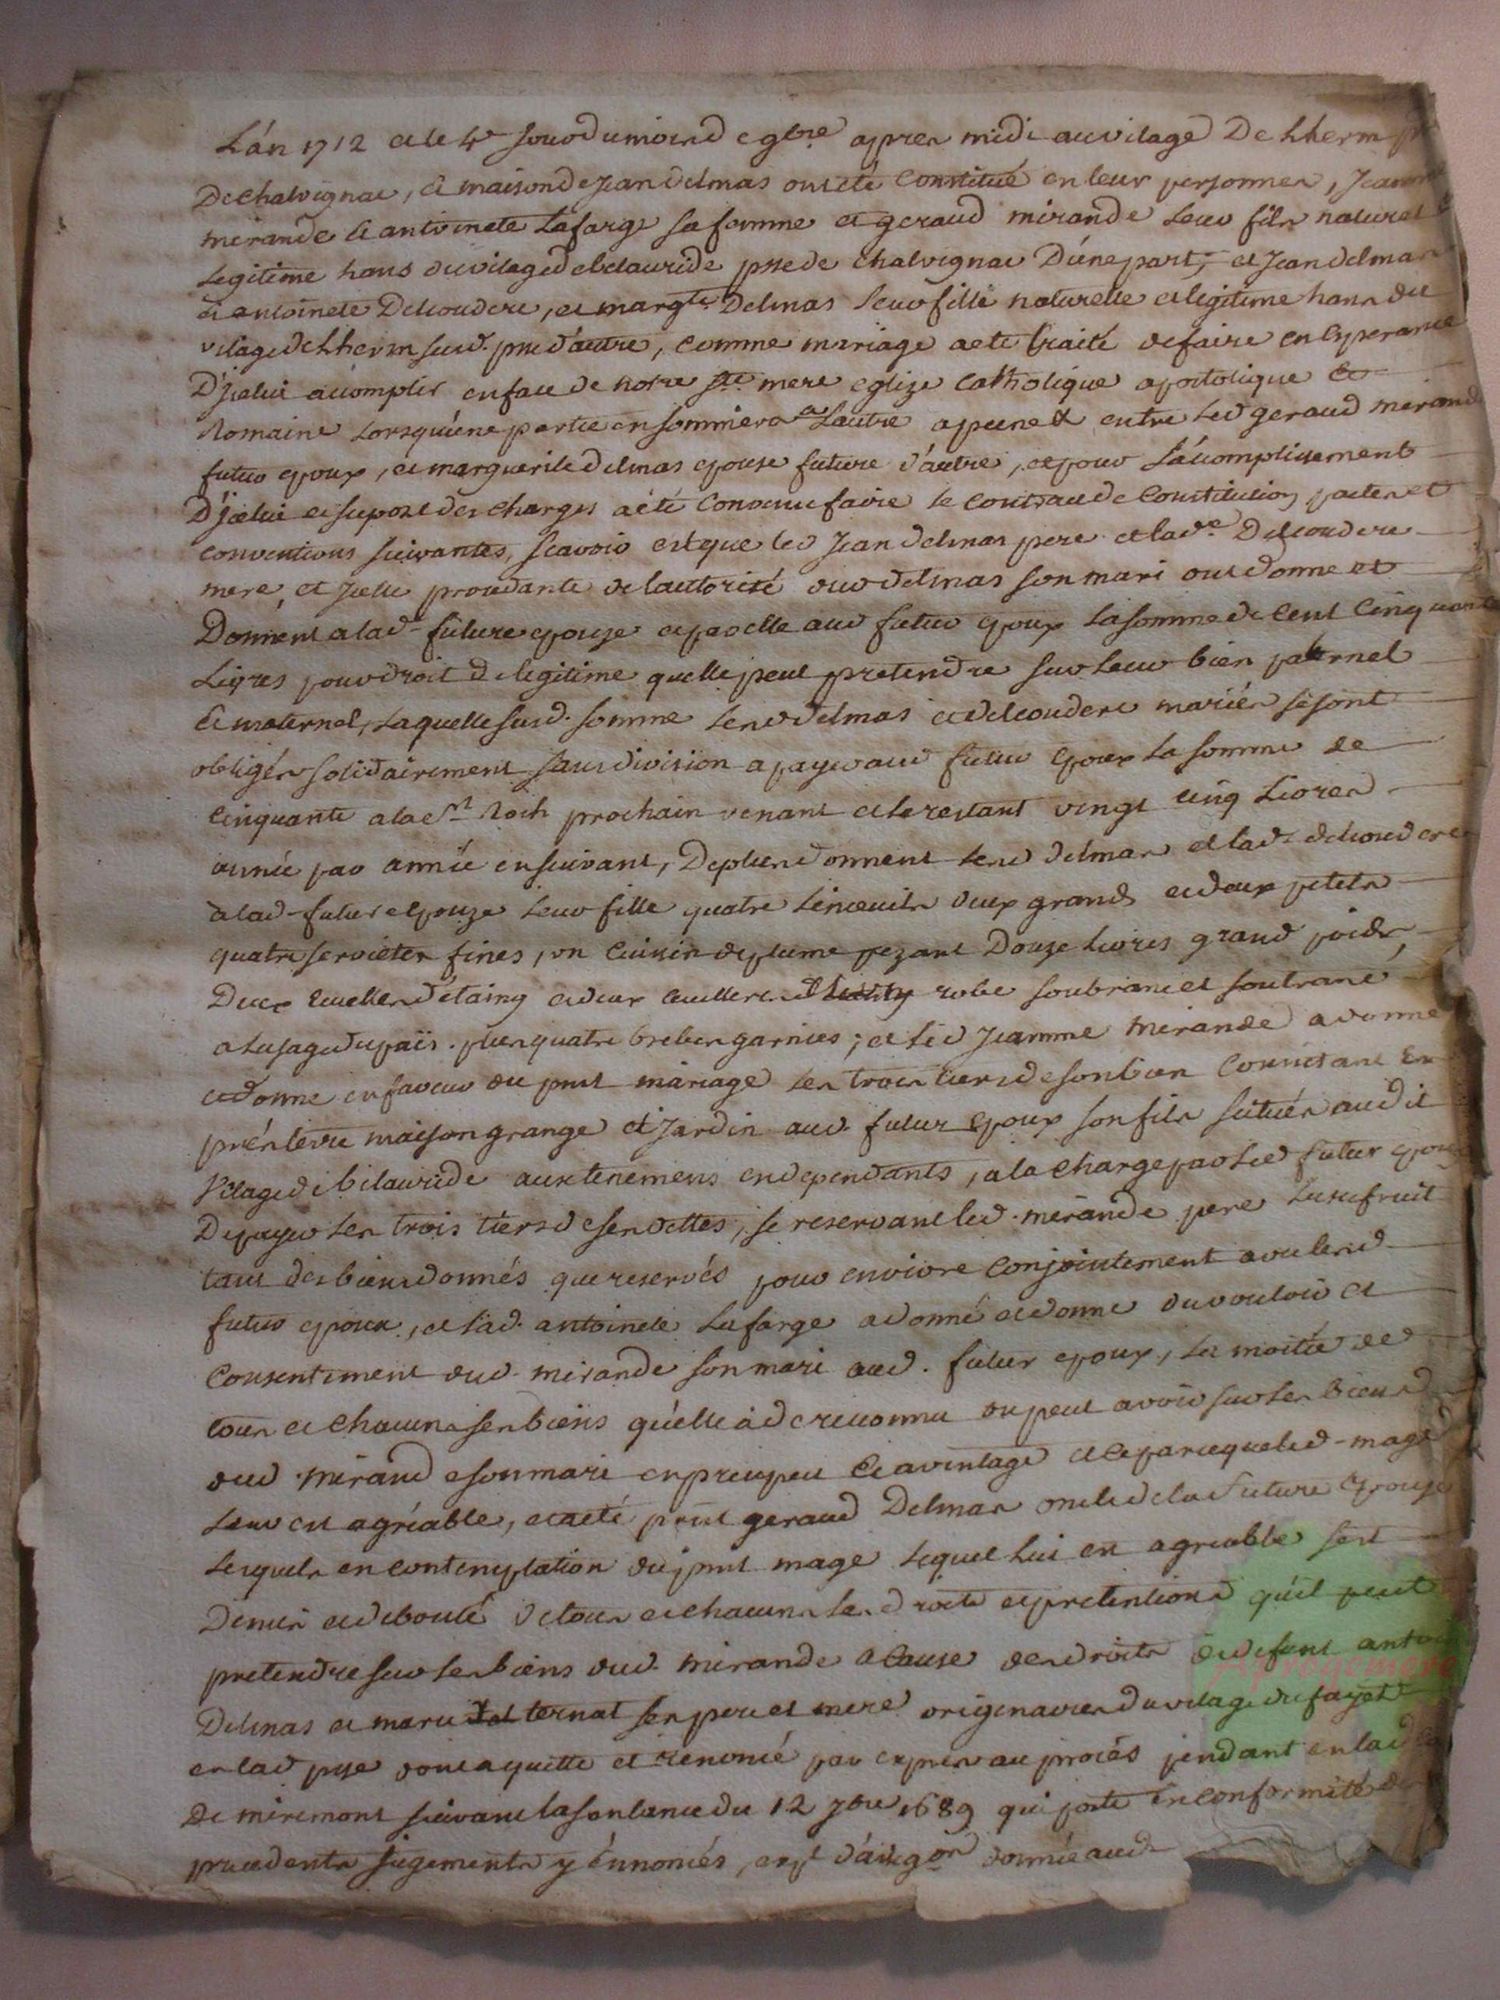 L'án 1712 et le 4e jour du mois de 9bre apres midi au vilage De Lherm
De chalvignac, et maison de jean delmas ont eté constitué en leur personnes, Jeamme
mirande et antoinete Lafarge sa femme et geraud mirande leur fils naturel
legitime hans du vilage de belauride psse de chalvignac D'une part, et Jean delmas
et antoinete Delcoudere, et margte Delmas leur fille naturelle et legitime hans du
vilage de Lherm susd. psse d'autre, comme mariage a eté traité de faire en esperance
D'jcelui acomplir en face de notre ste mere eglize catholique apostolique et
Romaine lorsqu'une partie en sommera a L'autre a peine & entre led geraud mirande
futur epoux, et marguerite delmas epouse future d'autre, et pour L'acomplissement
D'jcelui et suport des charges a été convenu faire le contract de constitution pactes et
conventions suivantes, scavoir est que led Jean delmas pere et lade. Delcoudere
mere, et jcelle procedante de l'autorité dud delmas son mari ont donné et
Donnent a lad. future epouze et par elle aud futur epoux La somme de cent cinquante
Livres pour droit de legitime quelle peut pretendre sur leur bien paternel
et maternel, laquelle susd. somme lesd delmas et delcoudere mariés se sont
obligés solidairement sans division a payer aud futur epoux la somme de
cinquante a la st Roch prochain venant et le restant vingt cinq livres
année par année ensuivant, De plus donnent lesd delmas et lad. delcoudere
a lad. future epouze leur fille quatre linceuils deux grands et deux petits
quatre servietes fines, un cuissin de plume pezant Douze livres grand poids,
Deux ecuelles d'étaing et deux cuilleres robe soubrane et soutrane
a lusage du païs. plus quatre brebes garnies; et led Jeamme mirande a donné
et donne en faveur du pnt mariage les trois tiers de son bien consistant en
prés terre maison grange et jardin aud. futur epoux son fils situés audit
vilage de belauride aux tenemens en dependants, a la charge par led futur epoux
De payer les trois tiers de ses dettes, se reservant led. mirande pere Lusufruit
tant des biens donnés que reservés pour en vivre conjointement avec lesd
futur epoux, et lad. antoinete Lafarge a donné et donne du vouloir et
consentement dud. mirande son mari aud. futur epoux, la moitié de
tous et chacuns ses biens qu'elle a de reconnu ou peut avoir sur les biens
dud. mirande son mari en preciput et avantage et ce parceque led. mage
leur est agréable, et a eté pnt geraud Delmas oncle de la d future epouze
lesquels en contemplation du pnt mage lequel lui est agreable sest
Demis et debouté de tous et chacuns les droits et pretentions qu'il peut
pretendre sur les biens dud. mirande a cause des droits de defunt
Delmas et marie ternat ses pere et mere originaires du vilage du fayet
en lad psse dont a quitté et renoncé par expres au procés pendant en lad
de miremont suivant la sentance du 12 7bre 1689 qui porte en conformité des
precedents jugements y énnoncés,